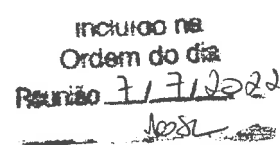 Incluído na
Ordem do dia
Reunião 7/7/2022